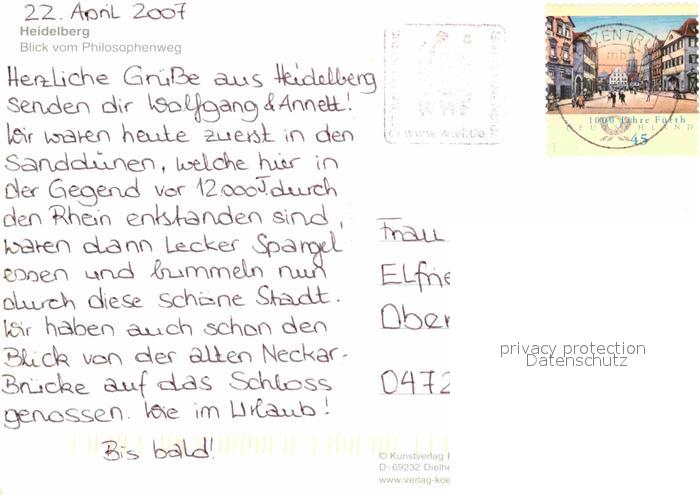 22. April 2007
Heidelberg
Blick vom Philosophenweg
Herzliche Grüße aus Heidelberg
senden dir Wolfgang & Annett!
Wir waren heute zuerst in den
Sanddünen, welche hier in
der Gegend vor 12.000 J. durch
den Rhein entstanden sind,
waren dann lecker Spargel
essen und bummeln nun
durch diese schöne Stadt.
Wir haben auch schon den
Blick von der alten Neckar-
Brücke auf das Schloss
genossen. Wie im Urlaub!
Bis bald!
WWF
www.wwf.de
ZENTR
1000 Jahre Fürth
DEUTSCHLAND
45
Frau
Elfrie
Ober
0472
privacy protection
Datenschutz
© Kunstverlag E
D-69232 Dielhe
www.verlag-koe